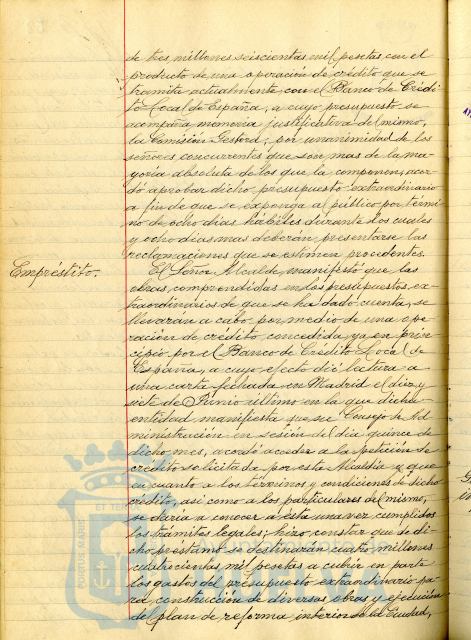 de tres millones seiscientas mil pesetas, con el
producto de una operación de crédito que se
tramita actualmente, con el Banco de Crédi-
to Local de España, a cuyo presupuesto se
acompaña memoria justificativa del mismo,
la Comisión Gestora, por unanimidad de los
señores concurrentes que son mas de la ma-
yoría absoluta de los que la componen, acor-
dó aprobar dicho presupuesto extraordinario
a fin de que se exponga al público por térmi-
no de ocho dias hábiles durante los cuales
y ocho dias mas deberán presentarse las
reclamaciones que se estimen procedentes.
Empréstito.-
El Señor Alcalde manifestó que las
obras, comprendidas en los presupuestos, ex-
traordinarios de que se ha dado cuenta, se
llevarán a cabo por medio de una ope-
ración de crédito concedida, ya en prin-
cipio por el Banco de Crédito Local de
España, a cuyo efecto dió lectura a
una carta fechada en Madrid el diez y
siete de Junio último en la que dicha
entidad manifiesta que su Consejo de Ad-
ministración en sesión del día quince de
dicho mes, acordó acceder a la petición de
crédito solicitada por esta Alcaldía y que
en cuanto a los términos y condiciones de dicho
crédito, así como a los particulares del mismo,
se daría a conocer a ésta una vez cumplidos
los trámites legales; hizo constar que de di-
cho préstamo se destinarán cuatro millones
cuatrocientas mil pesetas a cubrir en parte
los gastos del presupuesto extraordinario pa-
ra, construcción de diversas obras y ejecución
del plan de reforma interior de la Ciudad,